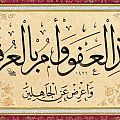 خذ العفو وأمر بالعرف
وأعرض عن الجاهلين